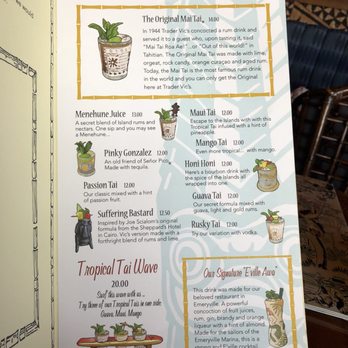 The Original Mai Tai 14.00
In 1944 Trader Vic's concocted a rum drink and
served it to a guest who, upon tasting it, said
"Mai Tai Roa Ae!"...or "Out of this world!" in
Tahitian. The Original Mai Tai was made with lime,
orgeat, rock candy, orange curaçao and aged rum.
Today, the Mai Tai is the most famous rum drink
in the world and you can only get the Original
here at Trader Vic's.
Menehune Juice 13.00
A secret blend of Island rums and
nectars. One sip and you may see
a Menehune...
Pinky Gonzalez 12.00
An old friend of Señor Pico.
Made with tequila.
Passion Tai 12.00
Our classic mixed with a hint
of passion fruit.
Suffering Bastard 12.50
Inspired by Joe Scialom's original
formula from the Sheppard's Hotel
in Cairo. Vic's version made with a
forthright blend of rums and lime
Maui Tai 12.00
Escape to the Islands with this
Tropical Tai infused with a hint of
pineapple.
Mango Tai 12.00
Even more tropical... with mango.
Honi Honi 12.00
Here's a bourbon drink with
the spice of the Islands all
wrapped into one.
Guava Tai 12.00
Our secret formula mixed with
guava, light and gold rums.
Rusky Tai 12.00
Try our variation with vodka.
Tropical Tai Wave
20.00
Surf this wave with us...
Try three of our Tropical Tais in one ride:
Guava, Maui, Mango
Our Signature "Eville Awa"
This drink was made for our
beloved restaurant in
Emeryville. A powerful
concoction of fruit juices,
rum, gin, brandy and orange
liqueur with a hint of almond.
Made for the sailors of the
Emeryville Marina, this is a